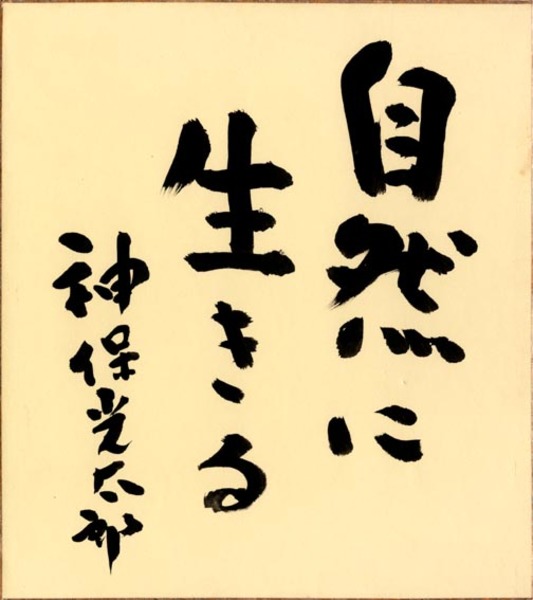 自然に
生きる
神保光太郎